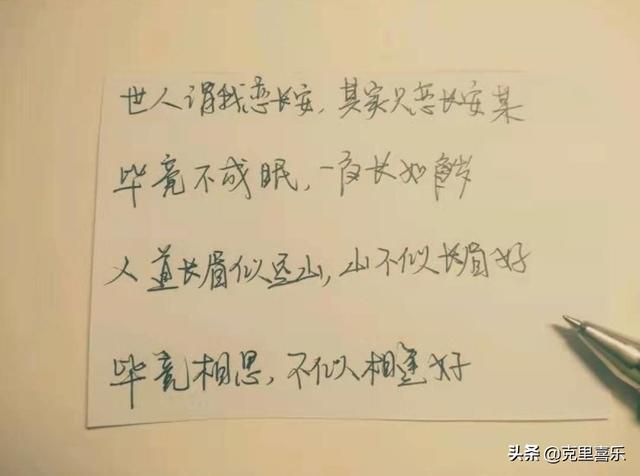 世人谓我恋长安，其实只恋长安某
毕竟不成眠，一夜长如岁
人道长眉似远山，山不似长眉好
毕竟相思，不似相逢好
头条 @克里喜乐